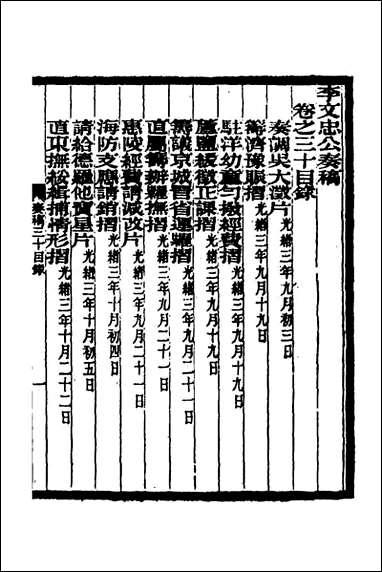 李文忠公奏稿
卷之三十目錄
奏調吳大澂片光緒三年九月初三日
籌濟豫賑摺光緒三年九月十九日
駐洋幼童勻撥經費摺光緒三年九月十九日
蘆鹽緩徵正課摺光緒三年九月十九日
籌議京城晉省運糶摺光緒三年九月二十一日
直屬籌辦糶撫摺光緒三年九月二十一日
惠陵經費請減改片光緒三年九月二十一日
海防支應請銷摺光緒三年十月初四日
請給德璀他寶星片光緒三年十月初五日
直東撫綏緝捕情形摺光緒三年十月二十二日
奏稿三十目錄
一